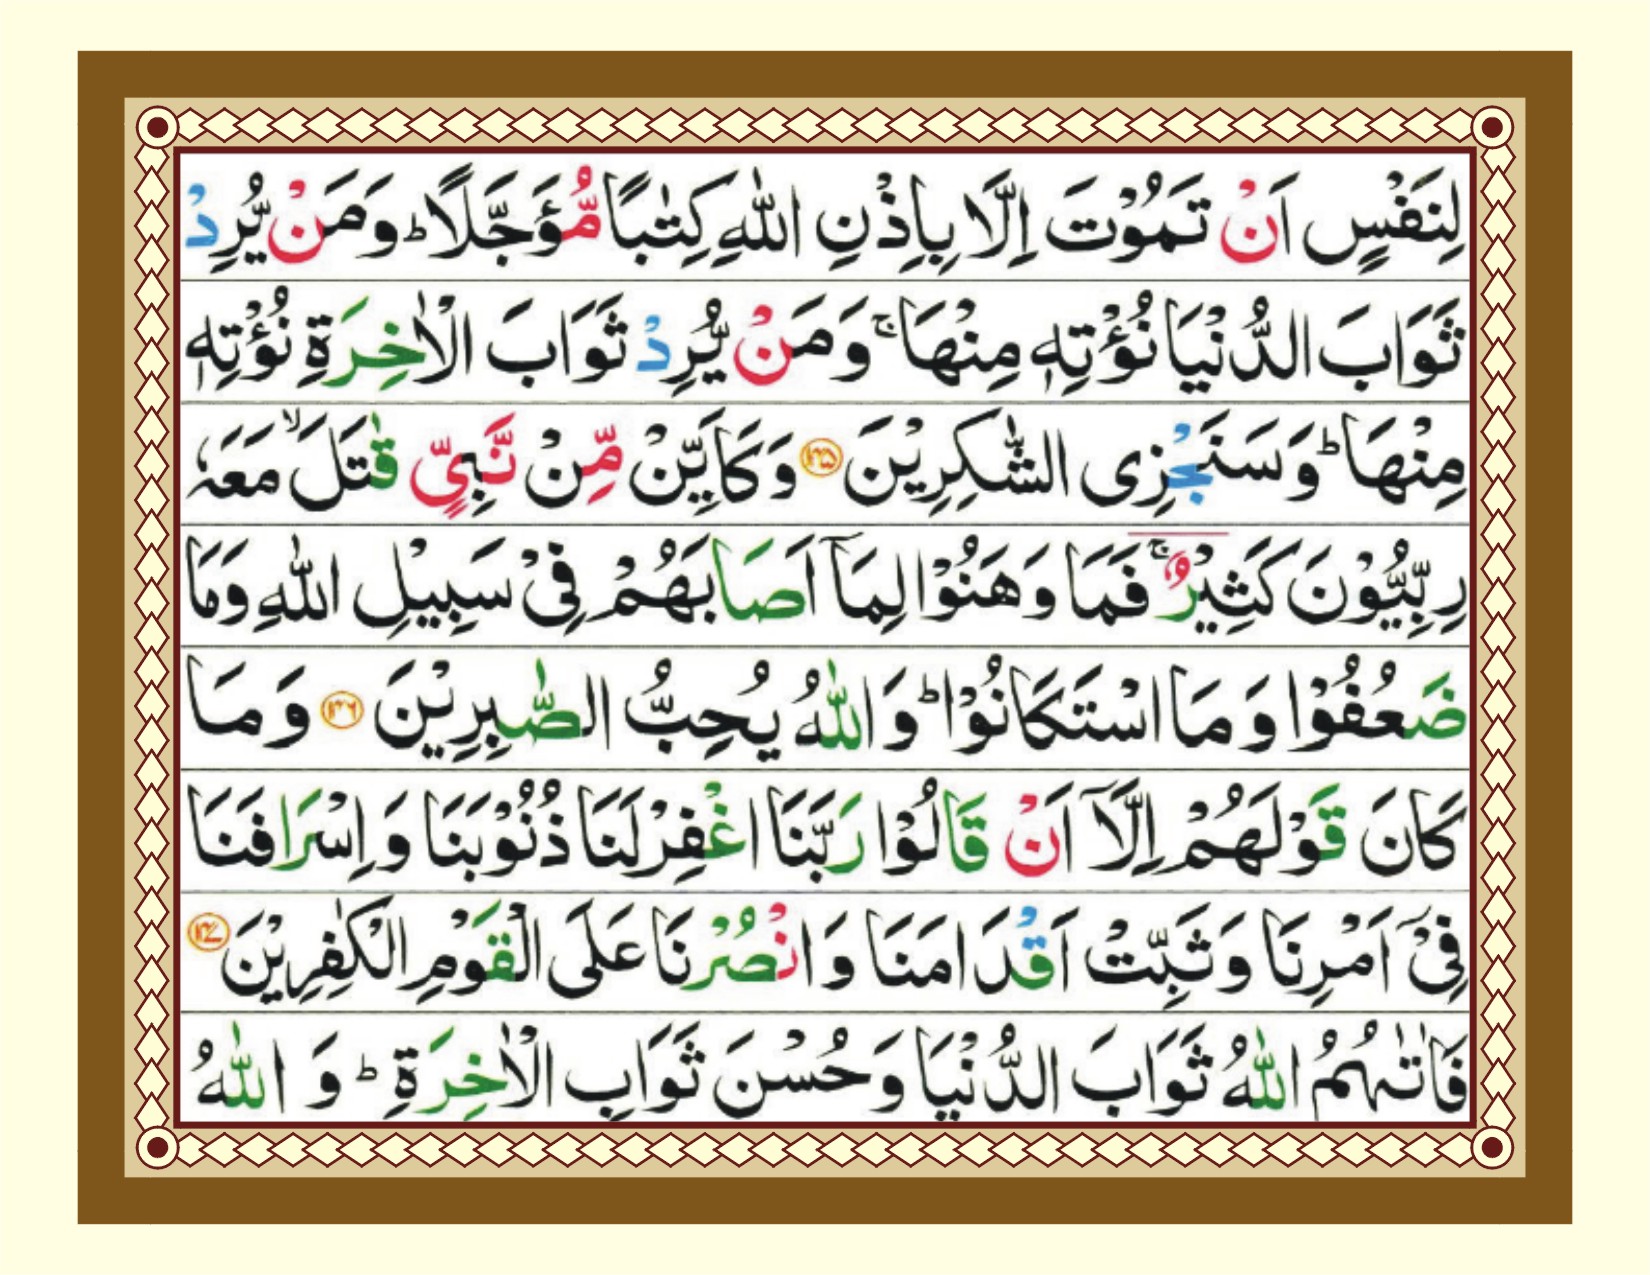 لِنَفْسٍ اَنْ تَمُوْتَ اِلَّا بِاِذْنِ اللّٰهِ كِتٰبًا مُّؤَجَّلًا ؕ وَمَنْ يُّرِدْ
ثَوَابَ الدُّنْيَا نُؤْتِهٖ مِنْهَا ۚ وَمَنْ يُّرِدْ ثَوَابَ الْاٰخِرَةِ نُؤْتِهٖ
مِنْهَا ؕ وَسَنَجْزِى الشّٰكِرِيْنَ ۝۱۴۵ وَكَاَيِّنْ مِّنْ نَّبِىٍّ قٰتَلَ ۙ مَعَهٗ
رِبِّيُّوْنَ كَثِيْرٌ ۚ فَمَا وَهَنُوْا لِمَاۤ اَصَابَهُمْ فِىْ سَبِيْلِ اللّٰهِ وَمَا
ضَعُفُوْا وَمَا اسْتَكَانُوْا ؕ وَاللّٰهُ يُحِبُّ الصّٰبِرِيْنَ ۝۱۴۶ وَمَا
كَانَ قَوْلَهُمْ اِلَّاۤ اَنْ قَالُوْا رَبَّنَا اغْفِرْلَنَا ذُنُوْبَنَا وَاِسْرَافَنَا
فِىْۤ اَمْرِنَا وَثَبِّتْ اَقْدَامَنَا وَانْصُرْنَا عَلَى الْقَوْمِ الْكٰفِرِيْنَ ۝۱۴۷
فَاٰتٰٮهُمُ اللّٰهُ ثَوَابَ الدُّنْيَا وَحُسْنَ ثَوَابِ الْاٰخِرَةِ ؕ وَ اللّٰهُ